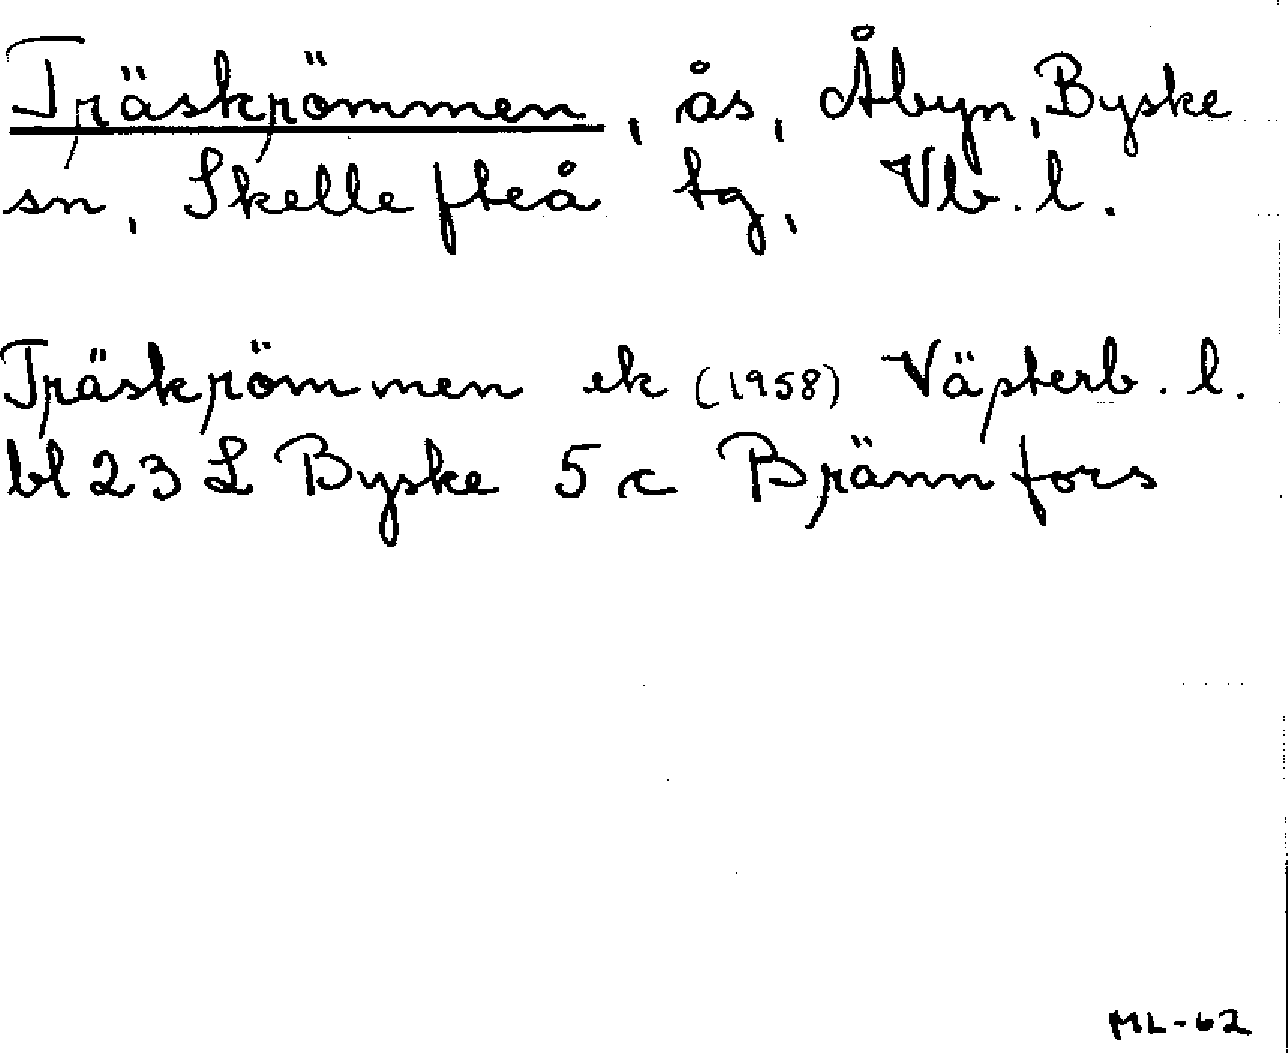 Träskrömmen, ås, Åbyn, Byske
sn, Skellefteå tg, Vb. l.
Träskrömmen ek (1958) Västerb. l.
bl 23 L Byske 5 c Brännfors
ML-62